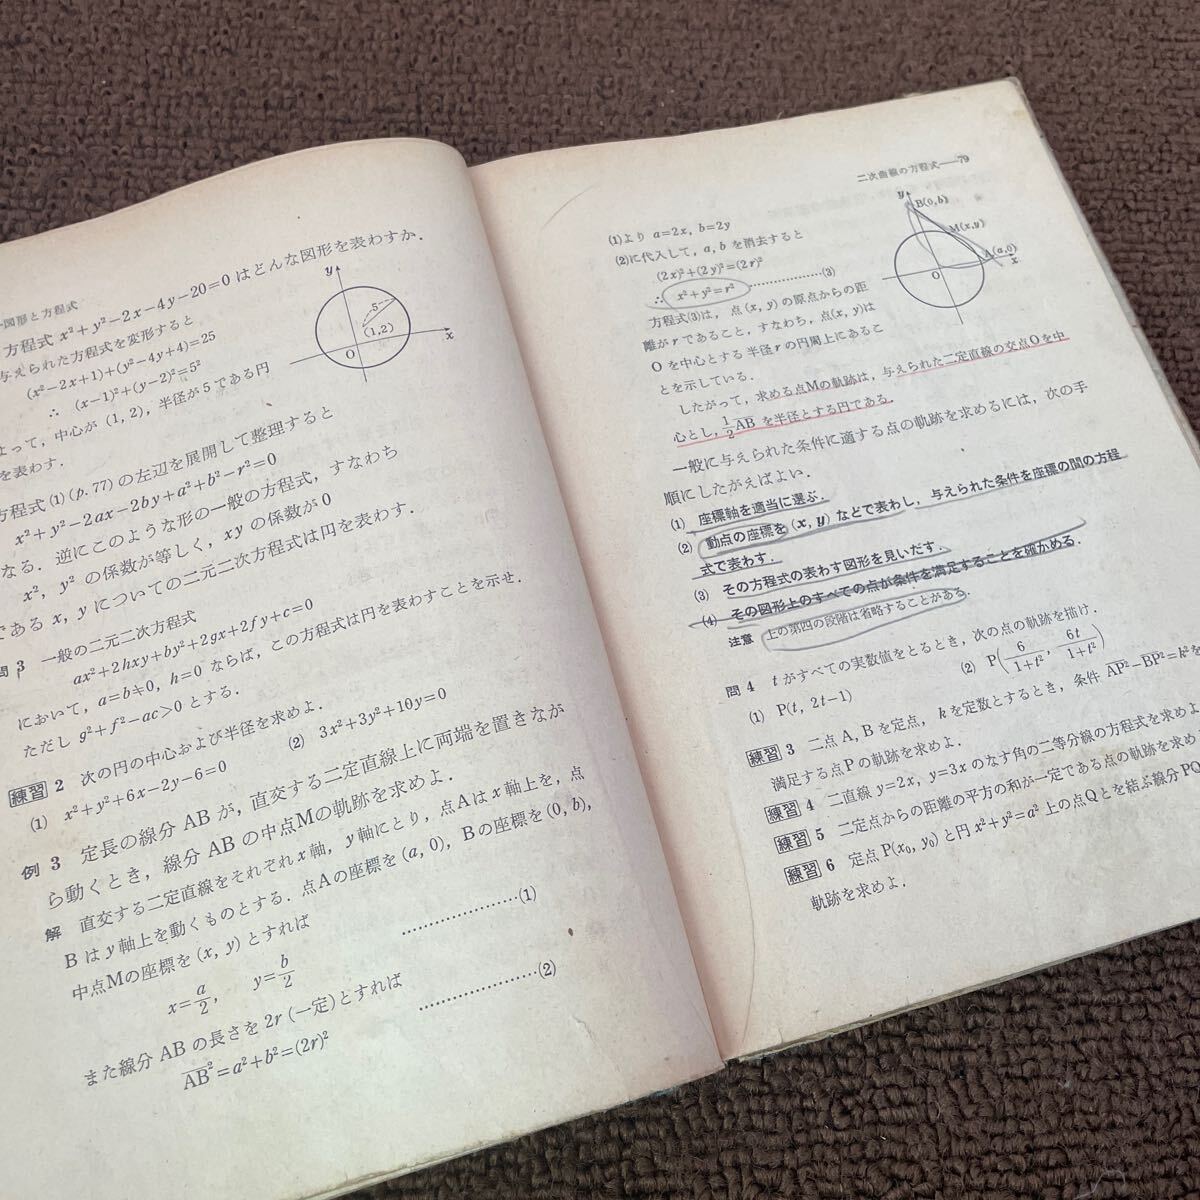 図形と方程式
方程式 x²+y²−2x−4y−20=0 はどんな図形を表わすか.
与えられた方程式を変形すると
(x²−2x+1)+(y²−4y+4)=25
∴ (x−1)²+(y−2)²=5²
よって, 中心が (1, 2), 半径が5である円
を表わす.
y
5
(1,2)
O
x
方程式(1)(p.77)の左辺を展開して整理すると
x²+y²−2ax−2by+a²+b²−r²=0
なる. 逆にこのような形の一般の方程式, すなわち
x², y² の係数が等しく, xy の係数が0
である x, y についての二元二次方程式は円を表わす.
問 3 一般の二元二次方程式
ax²+2hxy+by²+2gx+2fy+c=0
において, a=b≠0, h=0 ならば, この方程式は円を表わすことを示せ.
ただし g²+f²−ac>0 とする.
練習 2 次の円の中心および半径を求めよ.
(1) x²+y²+6x−2y−6=0 (2) 3x²+3y²+10y=0
例 3 定長の線分 AB が, 直交する二定直線上に両端を置きなが
ら動くとき, 線分 AB の中点Mの軌跡を求めよ.
解 直交する二定直線をそれぞれ x 軸, y 軸にとり, 点Aは x 軸上を, 点
B は y 軸上を動くものとする. 点Aの座標を (a, 0), B の座標を (0, b),
中点Mの座標を (x, y) とすれば
x=a/2, y=b/2 ……………………(1)
また線分 AB の長さを 2r (一定) とすれば
AB²=a²+b²=(2r)² ……………………(2)
二次曲線の方程式——79
(1)より a=2x, b=2y
(2)に代入して, a, b を消去すると
(2x)²+(2y)²=(2r)²
∴ x²+y²=r² ……………………(3)
y
B(0,b)
M(x,y)
A(a,0)
O
x
方程式(3)は, 点(x, y) の原点からの距
離が r であること, すなわち, 点(x, y)は
O を中心とする半径 r の円周上にあるこ
とを示している.
したがって, 求める点Mの軌跡は, 与えられた二定直線の交点Oを中
心とし, 1/2 AB を半径とする円である.
一般に与えられた条件に適する点の軌跡を求めるには, 次の手
順にしたがえばよい.
(1) 座標軸を適当に選ぶ.
(2) 動点の座標を (x, y) などで表わし, 与えられた条件を座標の間の方程
式で表わす.
(3) その方程式の表わす図形を見いだす.
(4) その図形上のすべての点が条件を満足することを確かめる.
注意 上の第四の段階は省略することがある.
問 4 t がすべての実数値をとるとき, 次の点の軌跡を描け.
(1) P(t, 2t−1) (2) P(6/(1+t²), 6t/(1+t²))
練習 3 二点 A, B を定点, k を定数とするとき, 条件 AP²−BP²=k² を
満足する点Pの軌跡を求めよ.
練習 4 二直線 y=2x, y=3x のなす角の二等分線の方程式を求めよ
練習 5 二定点からの距離の平方の和が一定である点の軌跡を求め
練習 6 定点 P(x₀, y₀) と円 x²+y²=a² 上の点Qとを結ぶ線分 PQ
軌跡を求めよ.